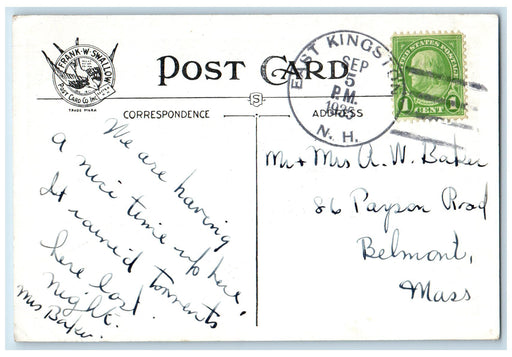 FRANK·W·SWALLOW
POST CARD CO. INC.
TRADE MARK
POST CARD
CORRESPONDENCE
ADDRESS
S
EAST KINGSTON
SEP
5
P.M.
N. H.
UNITED STATES POSTAGE
1 CENT 1
We are having
a nice time up here,
It rained torrents
here last
night.
Mrs Baker.
Mr + Mrs A. W. Baker
86 Payson Road
Belmont,
Mass